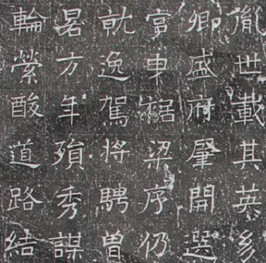 胤世載其英彡
卿盛府肇開選
官申裾梁序仍
就逸駕將騁曾
暑方年殞秀謀
輪縈酸道路結